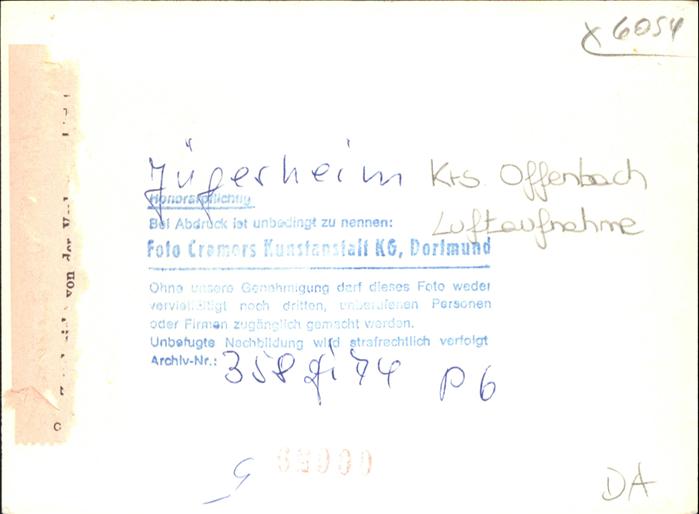 x 6054
Jügesheim Krs. Offenbach
Luftaufnahme
Honorarpflichtig
Bei Abdruck ist unbedingt zu nennen:
Foto Cremers Kunstanstalt KG, Dortmund
Ohne unsere Genehmigung darf dieses Foto weder
vervielfältigt noch dritten, unberufenen Personen
oder Firmen zugänglich gemacht werden.
Unbefugte Nachbildung wird strafrechtlich verfolgt
Archiv-Nr.: 358 gi 74 P 6
DA
von der